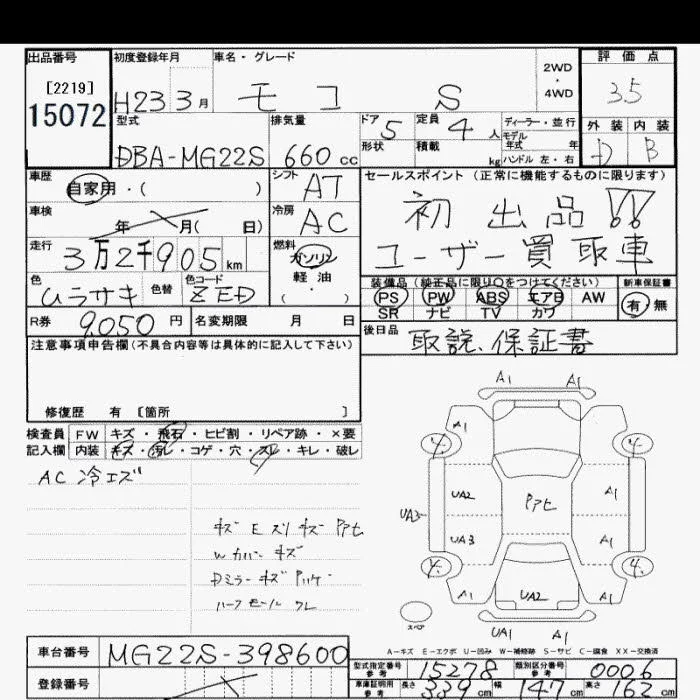 出品番号 初度登録年月 車名・グレード 2WD・4WD 評価点
[2219]
15072
H23 3月 モコ S 3.5
型式 排気量 ドア 5 定員 4人 ディーラー・並行 外装 内装
DBA-MG22S 660cc 形状 積載 kg モデル年式 年 ハンドル 左・右 D B
車歴 自家用・( ) シフト AT セールスポイント(正常に機能するものに限ります)
車検 年 月( 日) 冷房 AC 初出品!!
走行 3万2千905km 燃料 ガソリン ユーザー買取車
軽油
( ・ )
色 ムラサキ 色替 色コード ZED
装備品(純正品に限り○をつけてください) 新車保証書
PS PW ABS エアB AW 有・無
SR ナビ TV カワ
R券 9,050円 名変期限 月 日
後日品 取説、保証書
注意事項申告欄(不具合内容等は具体的に記入して下さい)
修復歴 有 [箇所 ]
検査員 FW キズ・飛石・ヒビ割・リペア跡・×要
記入欄 内装 キズ・汚レ・コゲ・穴・スレ・キレ・破レ
AC 冷エズ
Wカバー キズ
Dミラー キズ
ハーフモール ワレ
A1 A1
A1 A1
4 4
UA2 A1
UA3 UA3 A1
4 4
A1 UA2 A1
UA1 A1
スペア
A-キズ E-エクボ U-凹み W-補修跡 S-サビ C-腐食 XX-交換済
車台番号 MG22S-398600
登録番号
型式指定番号 参考 15278 類別区分番号 参考 0006
車庫証明用 参考 長さ 339cm 幅 147cm 高さ 162cm